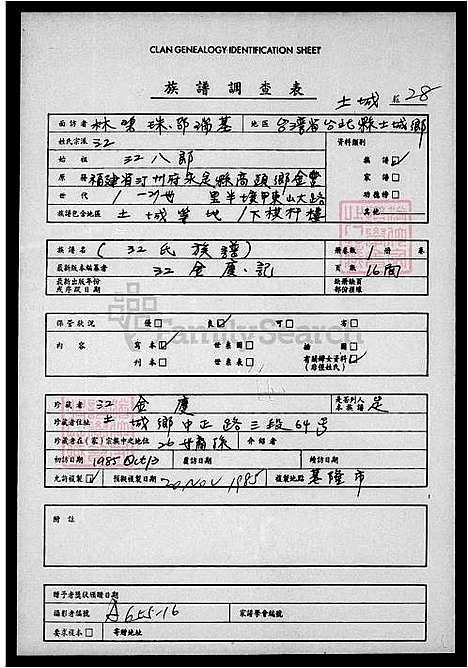 CLAN GENEALOGY IDENTIFICATION SHEET
族譜調查表
土城 28
面訪者 林 珠、鄧瑞基 地區 台灣省台北縣土城鄉
姓氏宗派 江 資料類別
始祖 江八郎 族譜
原籍 福建省汀州府永定縣高頭鄉金豐
家譜
世代 1—27世 里半墩甲東山大路 功德榜
族譜包含地區 土城等地/下模杆樓 其他
族譜名 (江氏族譜) 冊卷數 1冊 卷
最新版本編纂者 江金慶·記 頁數 16面
最新出版年份或序跋日期
缺冊缺頁部份標準
保管狀況 優 良 可 劣
內容 寫本 世系圖 插圖
刊本 世系表 有關婦女資料(珍惜姓氏)
珍藏者 江金慶 是否列入本族譜 是
珍藏者住址 土城鄉中正路三段64号
珍藏者在(家)宗族中之地位 26世裔孫 介紹者
初訪日期 1985 Oct 13 覆訪日期 續訪日期
允許複製 預擬複製日期 20 NOV 1985 複製地點 基隆市
附註
贈予者獎狀頒贈日期
攝影者編號 A655-16 家譜學會編號
要求複本 寄贈地址
FamilySearch